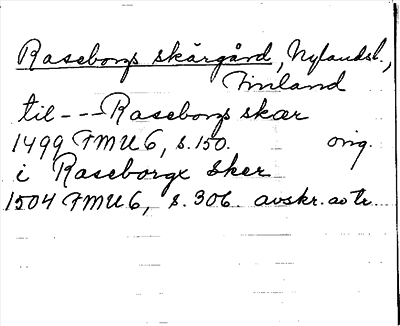 Raseborgs skärgård, Nylandsl.,
Finland
til --- Raseborgs skær
1499 FMU 6, s. 150. orig.
i Raseborgx Sker
1504 FMU 6, s. 306. avskr. av tr.